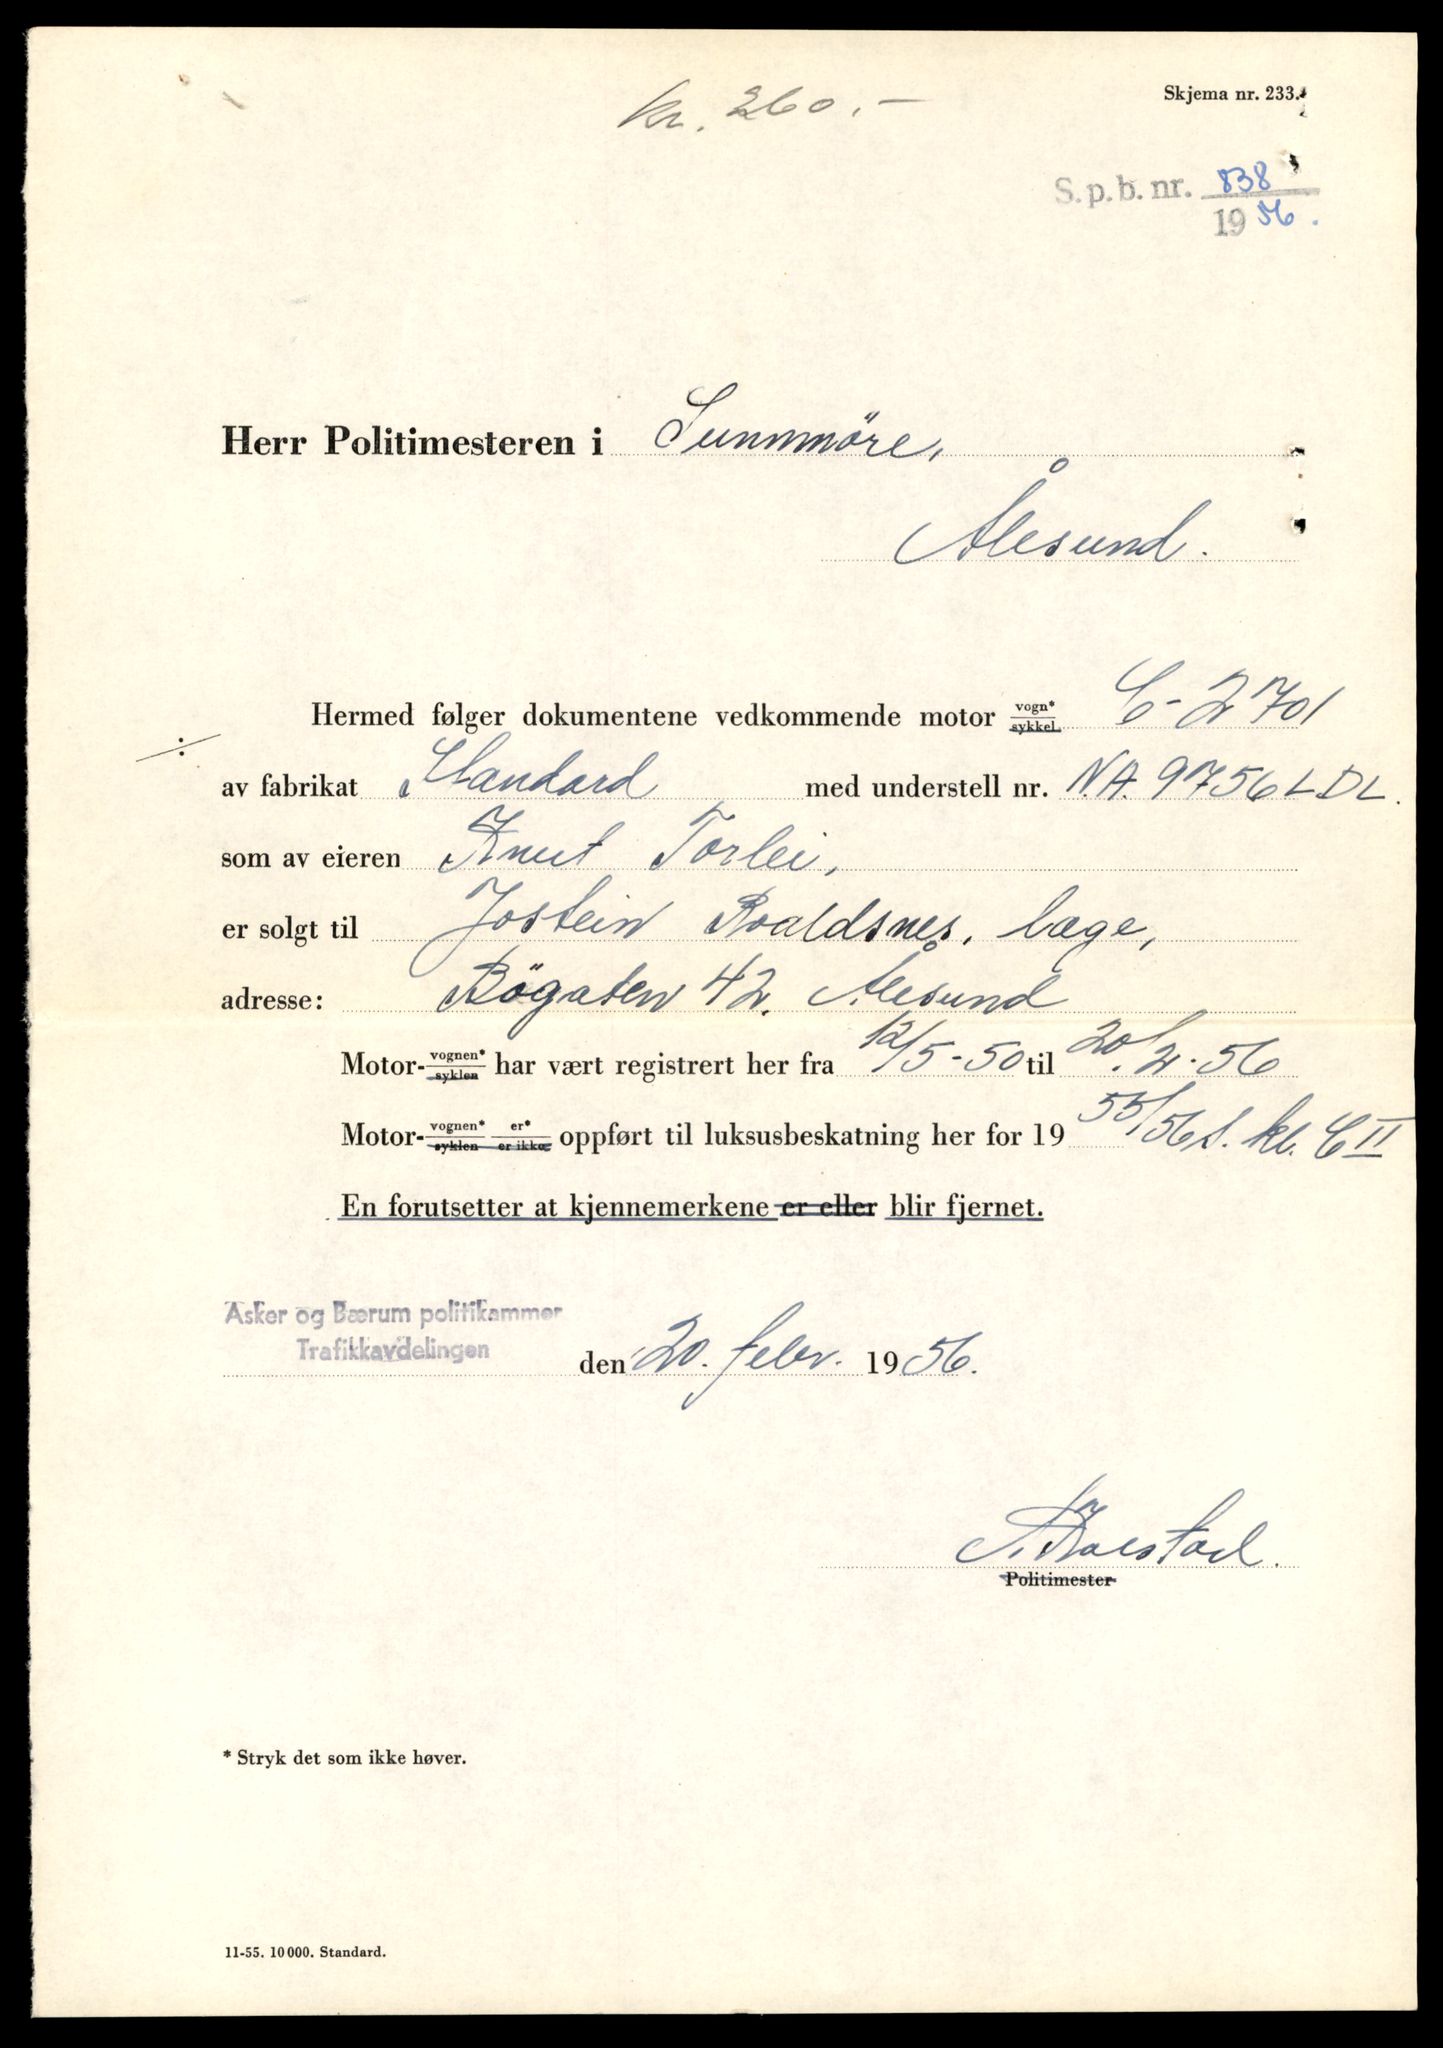 kr. 260.-
Skjema nr. 233.
S. p. b. nr. 838
1956.
Herr Politimesteren i Sunnmöre,
Ålesund.
Hermed følger dokumentene vedkommende motor vogn* / sykkel C-2701
÷
av fabrikat Standard med understell nr. N.A. 9756 LDL.
som av eieren Knut Torlei,
er solgt til Jostein Roaldsnes, læge,
adresse: Bögaten 42, Ålesund
Motor- vognen* / syklen har vært registrert her fra 12/5-50 til 20/2-56
Motor- vognen* / syklen er* / er ikke oppført til luksusbeskatning her for 19 55/56 S. kl. C II
En forutsetter at kjennemerkene er eller blir fjernet.
Asker og Bærum politikammer
Trafikkavdelingen
den 20. febr. 1956.
Politimester
* Stryk det som ikke høver.
11-55. 10 000. Standard.